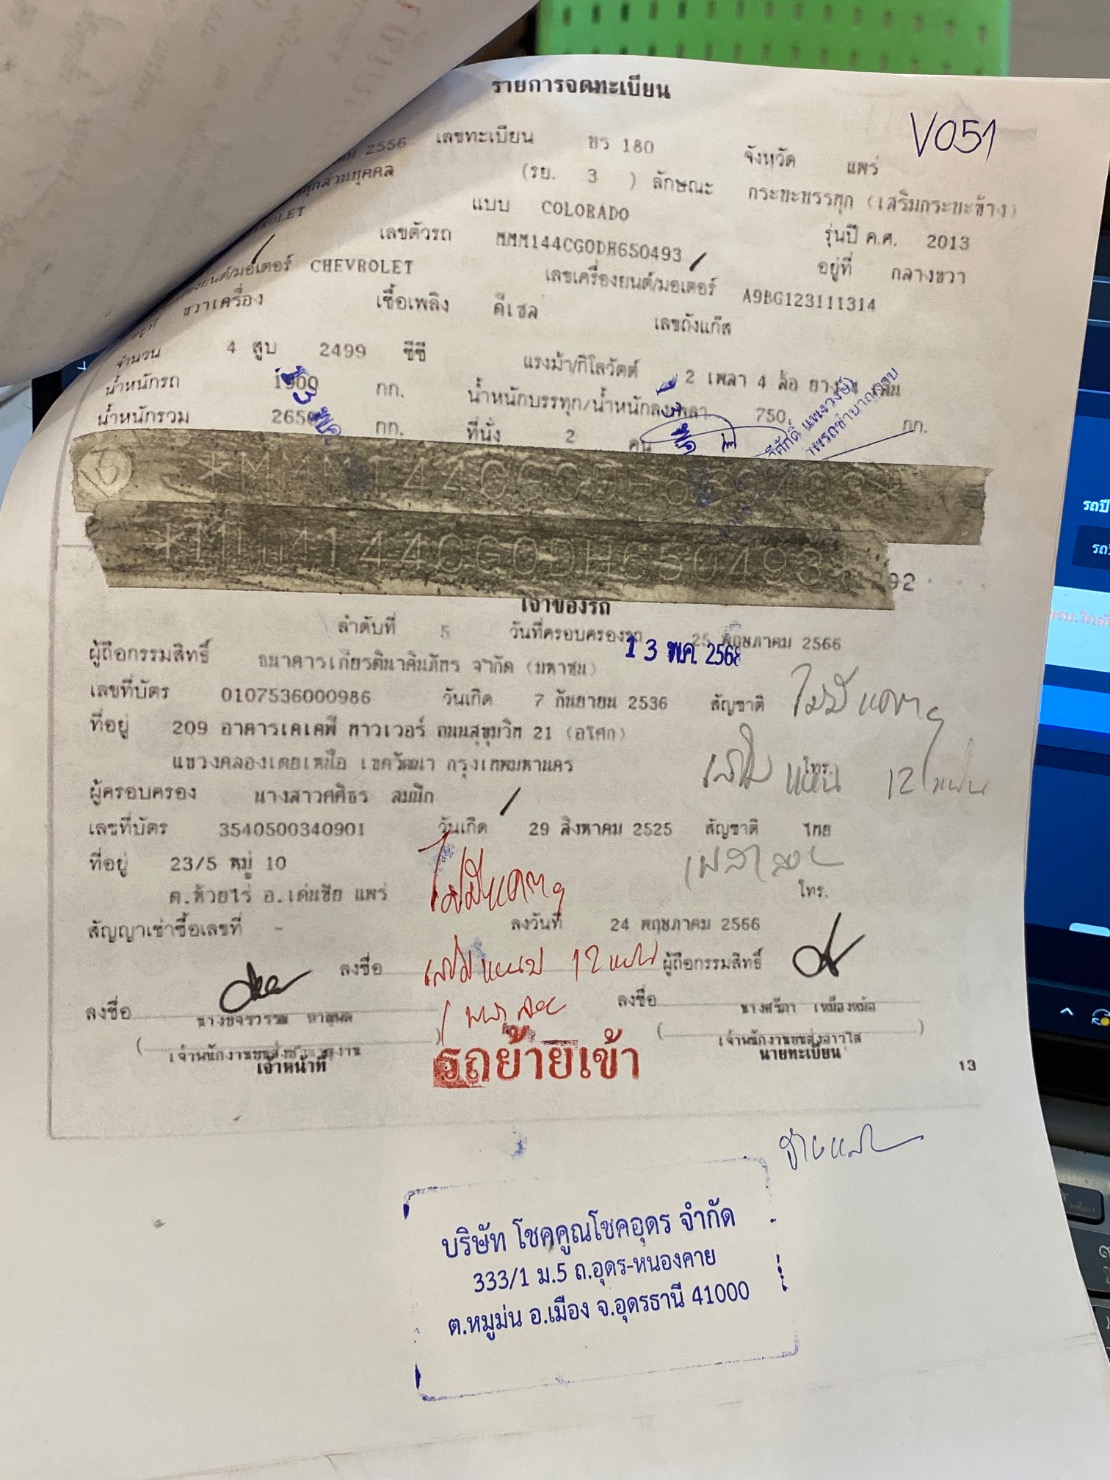 รายการจดทะเบียน
V051
2556 เลขทะเบียน บร 180 จังหวัด แพร่
(รย. 3 ) ลักษณะ กระบะบรรทุก (เสริมกระบะข้าง)
แบบ COLORADO รุ่นปี ค.ศ. 2013
เลขตัวรถ MMM144CG0DH650493 อยู่ที่ กลางขวา
ยนต์/มอเตอร์ CHEVROLET เลขเครื่องยนต์/มอเตอร์ A9BG123111314
ขวาเครื่อง เชื้อเพลิง ดีเซล เลขถังแก๊ส
จำนวน 4 สูบ 2499 ซีซี แรงม้า/กิโลวัตต์ 2 เพลา 4 ล้อ ยาง
น้ำหนักรถ 1900 กก. น้ำหนักบรรทุก/น้ำหนักลงเพลา 750 กก.
น้ำหนักรวม 2650 กก. ที่นั่ง 2 คน
13 พ.ค.
144CG0DH650493*
144CG0DH650493
92
เจ้าของรถ
ลำดับที่ 5 วันที่ครอบครองรถ 25 พฤษภาคม 2566
13 พ.ค. 2568
ผู้ถือกรรมสิทธิ์ ธนาคารเกียรตินาคินภัทร จำกัด (มหาชน)
เลขที่บัตร 0107536000986 วันเกิด 7 กันยายน 2536 สัญชาติ
ที่อยู่ 209 อาคารเคเคพี ทาวเวอร์ ถนนสุขุมวิท 21 (อโศก)
แขวงคลองเตยเหนือ เขตวัฒนา กรุงเทพมหานคร โทร.
12 แผ่น
ผู้ครอบครอง นางสาวศศิธร สมนึก
เลขที่บัตร 3540500340901 วันเกิด 29 สิงหาคม 2525 สัญชาติ ไทย
ที่อยู่ 23/5 หมู่ 10
ต.ห้วยไร่ อ.เด่นชัย แพร่ โทร.
สัญญาเช่าซื้อเลขที่ - ลงวันที่ 24 พฤษภาคม 2566
ลงชื่อ 12 แผ่น ผู้ถือกรรมสิทธิ์
ลงชื่อ ลงชื่อ
เจ้าหน้าที่ นายทะเบียน
รถย้ายเข้า
13
บริษัท โชคคูณโชคอุดร จำกัด
333/1 ม.5 ถ.อุดร-หนองคาย
ต.หมูม่น อ.เมือง จ.อุดรธานี 41000